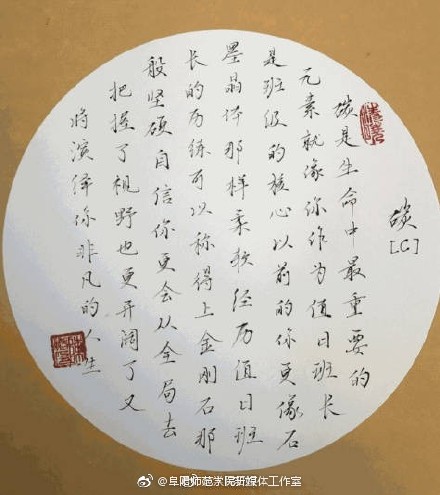 碳
[C]
碳是生命中最重要的
元素就像你作为值日班长
是班级的核心以前的你更像石
墨晶体那样柔软经历值日班
长的历练可以称得上金刚石那
般坚硬自信你更会从全局去
把握了视野也更开阔了又
将演绎你非凡的人生
@阜阳师范学院融媒体工作室